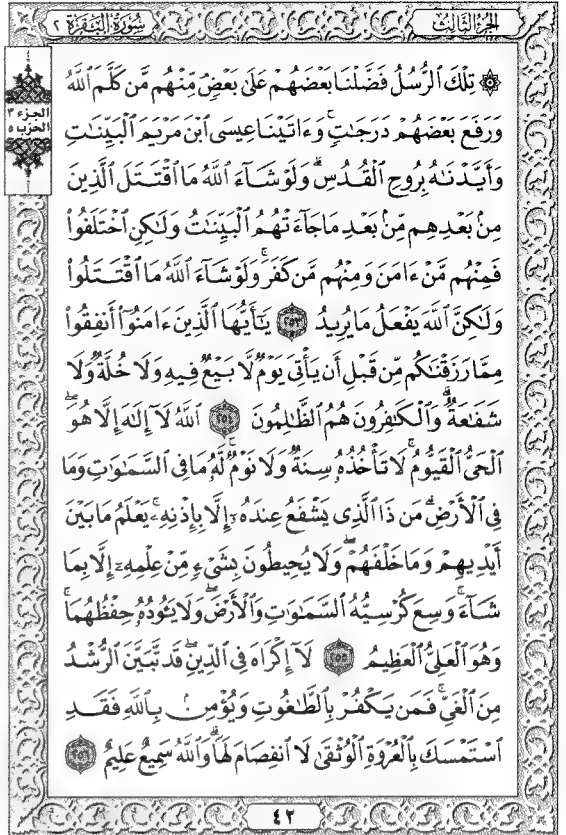 الجزء الثالث
سورة البقرة ٢
الجزء ٣
الحزب ٥
۞ تِلْكَ ٱلرُّسُلُ فَضَّلْنَا بَعْضَهُمْ عَلَىٰ بَعْضٍ مِّنْهُم مَّن كَلَّمَ ٱللَّهُ
وَرَفَعَ بَعْضَهُمْ دَرَجَٰتٍ وَءَاتَيْنَا عِيسَى ٱبْنَ مَرْيَمَ ٱلْبَيِّنَٰتِ
وَأَيَّدْنَٰهُ بِرُوحِ ٱلْقُدُسِ ۗ وَلَوْ شَآءَ ٱللَّهُ مَا ٱقْتَتَلَ ٱلَّذِينَ
مِنۢ بَعْدِهِم مِّنۢ بَعْدِ مَا جَآءَتْهُمُ ٱلْبَيِّنَٰتُ وَلَٰكِنِ ٱخْتَلَفُوا۟
فَمِنْهُم مَّنْ ءَامَنَ وَمِنْهُم مَّن كَفَرَ ۚ وَلَوْ شَآءَ ٱللَّهُ مَا ٱقْتَتَلُوا۟
وَلَٰكِنَّ ٱللَّهَ يَفْعَلُ مَا يُرِيدُ ٢٥٣ يَٰٓأَيُّهَا ٱلَّذِينَ ءَامَنُوٓا۟ أَنفِقُوا۟
مِمَّا رَزَقْنَٰكُم مِّن قَبْلِ أَن يَأْتِىَ يَوْمٌ لَّا بَيْعٌ فِيهِ وَلَا خُلَّةٌ وَلَا
شَفَٰعَةٌ ۗ وَٱلْكَٰفِرُونَ هُمُ ٱلظَّٰلِمُونَ ٢٥٤ ٱللَّهُ لَآ إِلَٰهَ إِلَّا هُوَ
ٱلْحَىُّ ٱلْقَيُّومُ ۚ لَا تَأْخُذُهُۥ سِنَةٌ وَلَا نَوْمٌ ۚ لَّهُۥ مَا فِى ٱلسَّمَٰوَٰتِ وَمَا
فِى ٱلْأَرْضِ ۗ مَن ذَا ٱلَّذِى يَشْفَعُ عِندَهُۥٓ إِلَّا بِإِذْنِهِۦ ۚ يَعْلَمُ مَا بَيْنَ
أَيْدِيهِمْ وَمَا خَلْفَهُمْ ۖ وَلَا يُحِيطُونَ بِشَىْءٍ مِّنْ عِلْمِهِۦٓ إِلَّا بِمَا
شَآءَ ۚ وَسِعَ كُرْسِيُّهُ ٱلسَّمَٰوَٰتِ وَٱلْأَرْضَ ۖ وَلَا يَـُٔودُهُۥ حِفْظُهُمَا ۚ
وَهُوَ ٱلْعَلِىُّ ٱلْعَظِيمُ ٢٥٥ لَآ إِكْرَاهَ فِى ٱلدِّينِ ۖ قَد تَّبَيَّنَ ٱلرُّشْدُ
مِنَ ٱلْغَىِّ ۚ فَمَن يَكْفُرْ بِٱلطَّٰغُوتِ وَيُؤْمِنۢ بِٱللَّهِ فَقَدِ
ٱسْتَمْسَكَ بِٱلْعُرْوَةِ ٱلْوُثْقَىٰ لَا ٱنفِصَامَ لَهَا ۗ وَٱللَّهُ سَمِيعٌ عَلِيمٌ ٢٥٦
٤٢